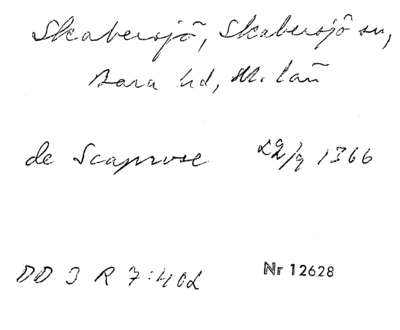 Skabersjö, Skabersjö sn,
Bara hd, M. län
de Scaprose 22/9 1366
DD 3 R 7:402 Nr 12628